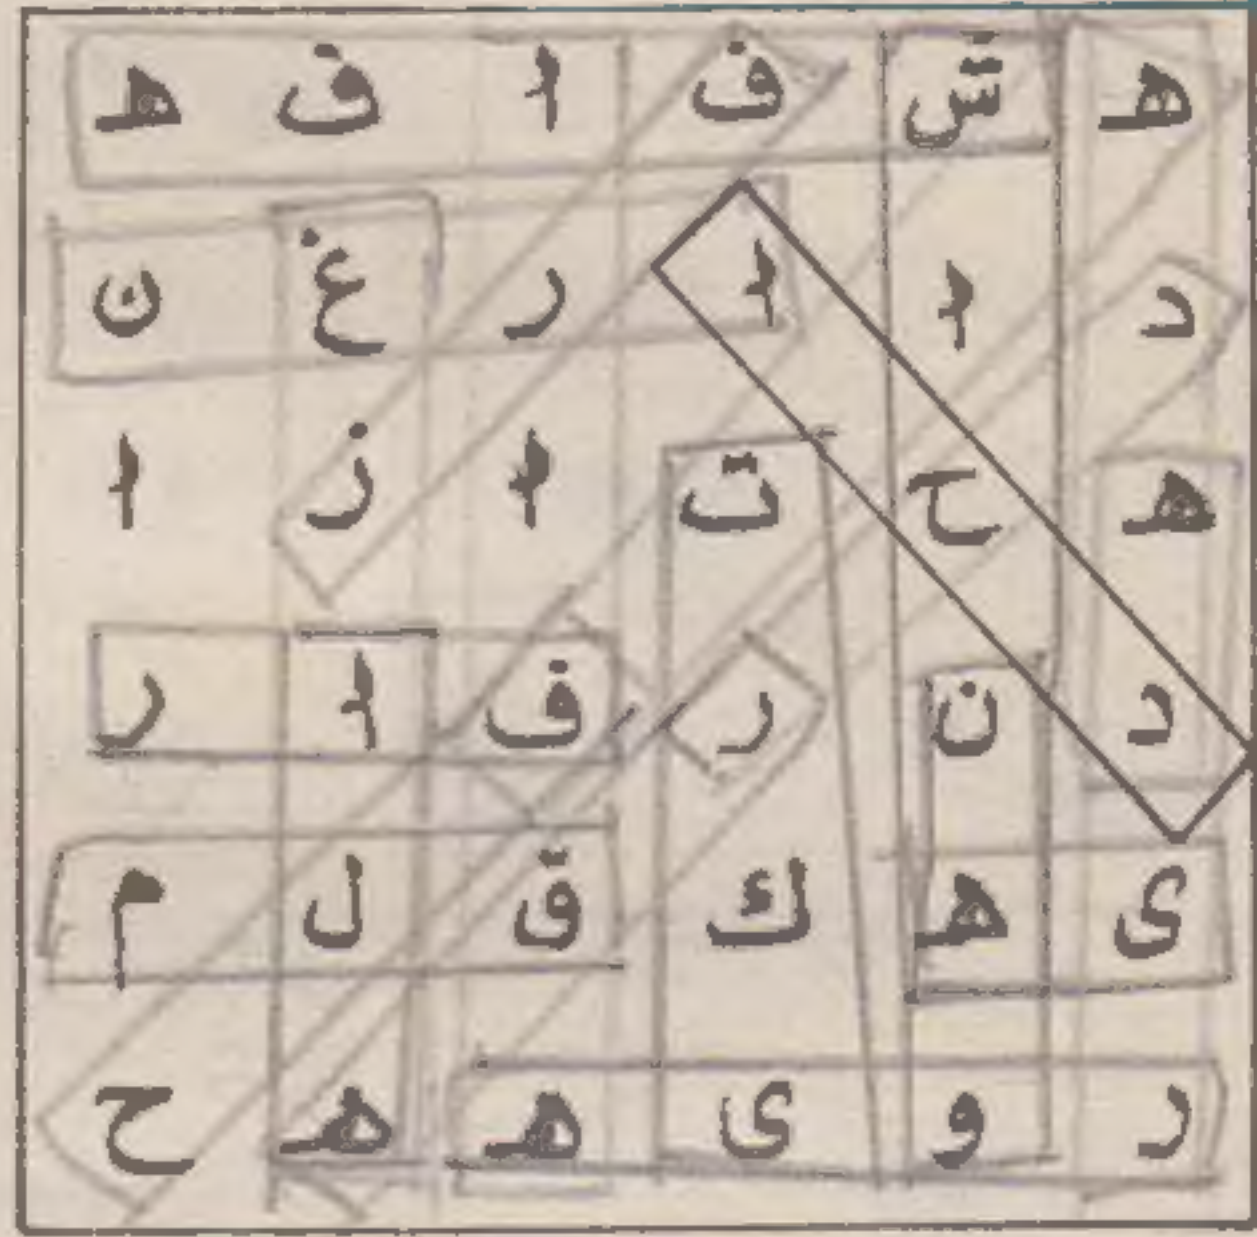 ه ش ف ا ف ه
د ا ا ر غ ن
ه ح ت ا ز ا
د ن ر ف ا ر
ی ه ك ق ل م
ر و ی ه ه ح